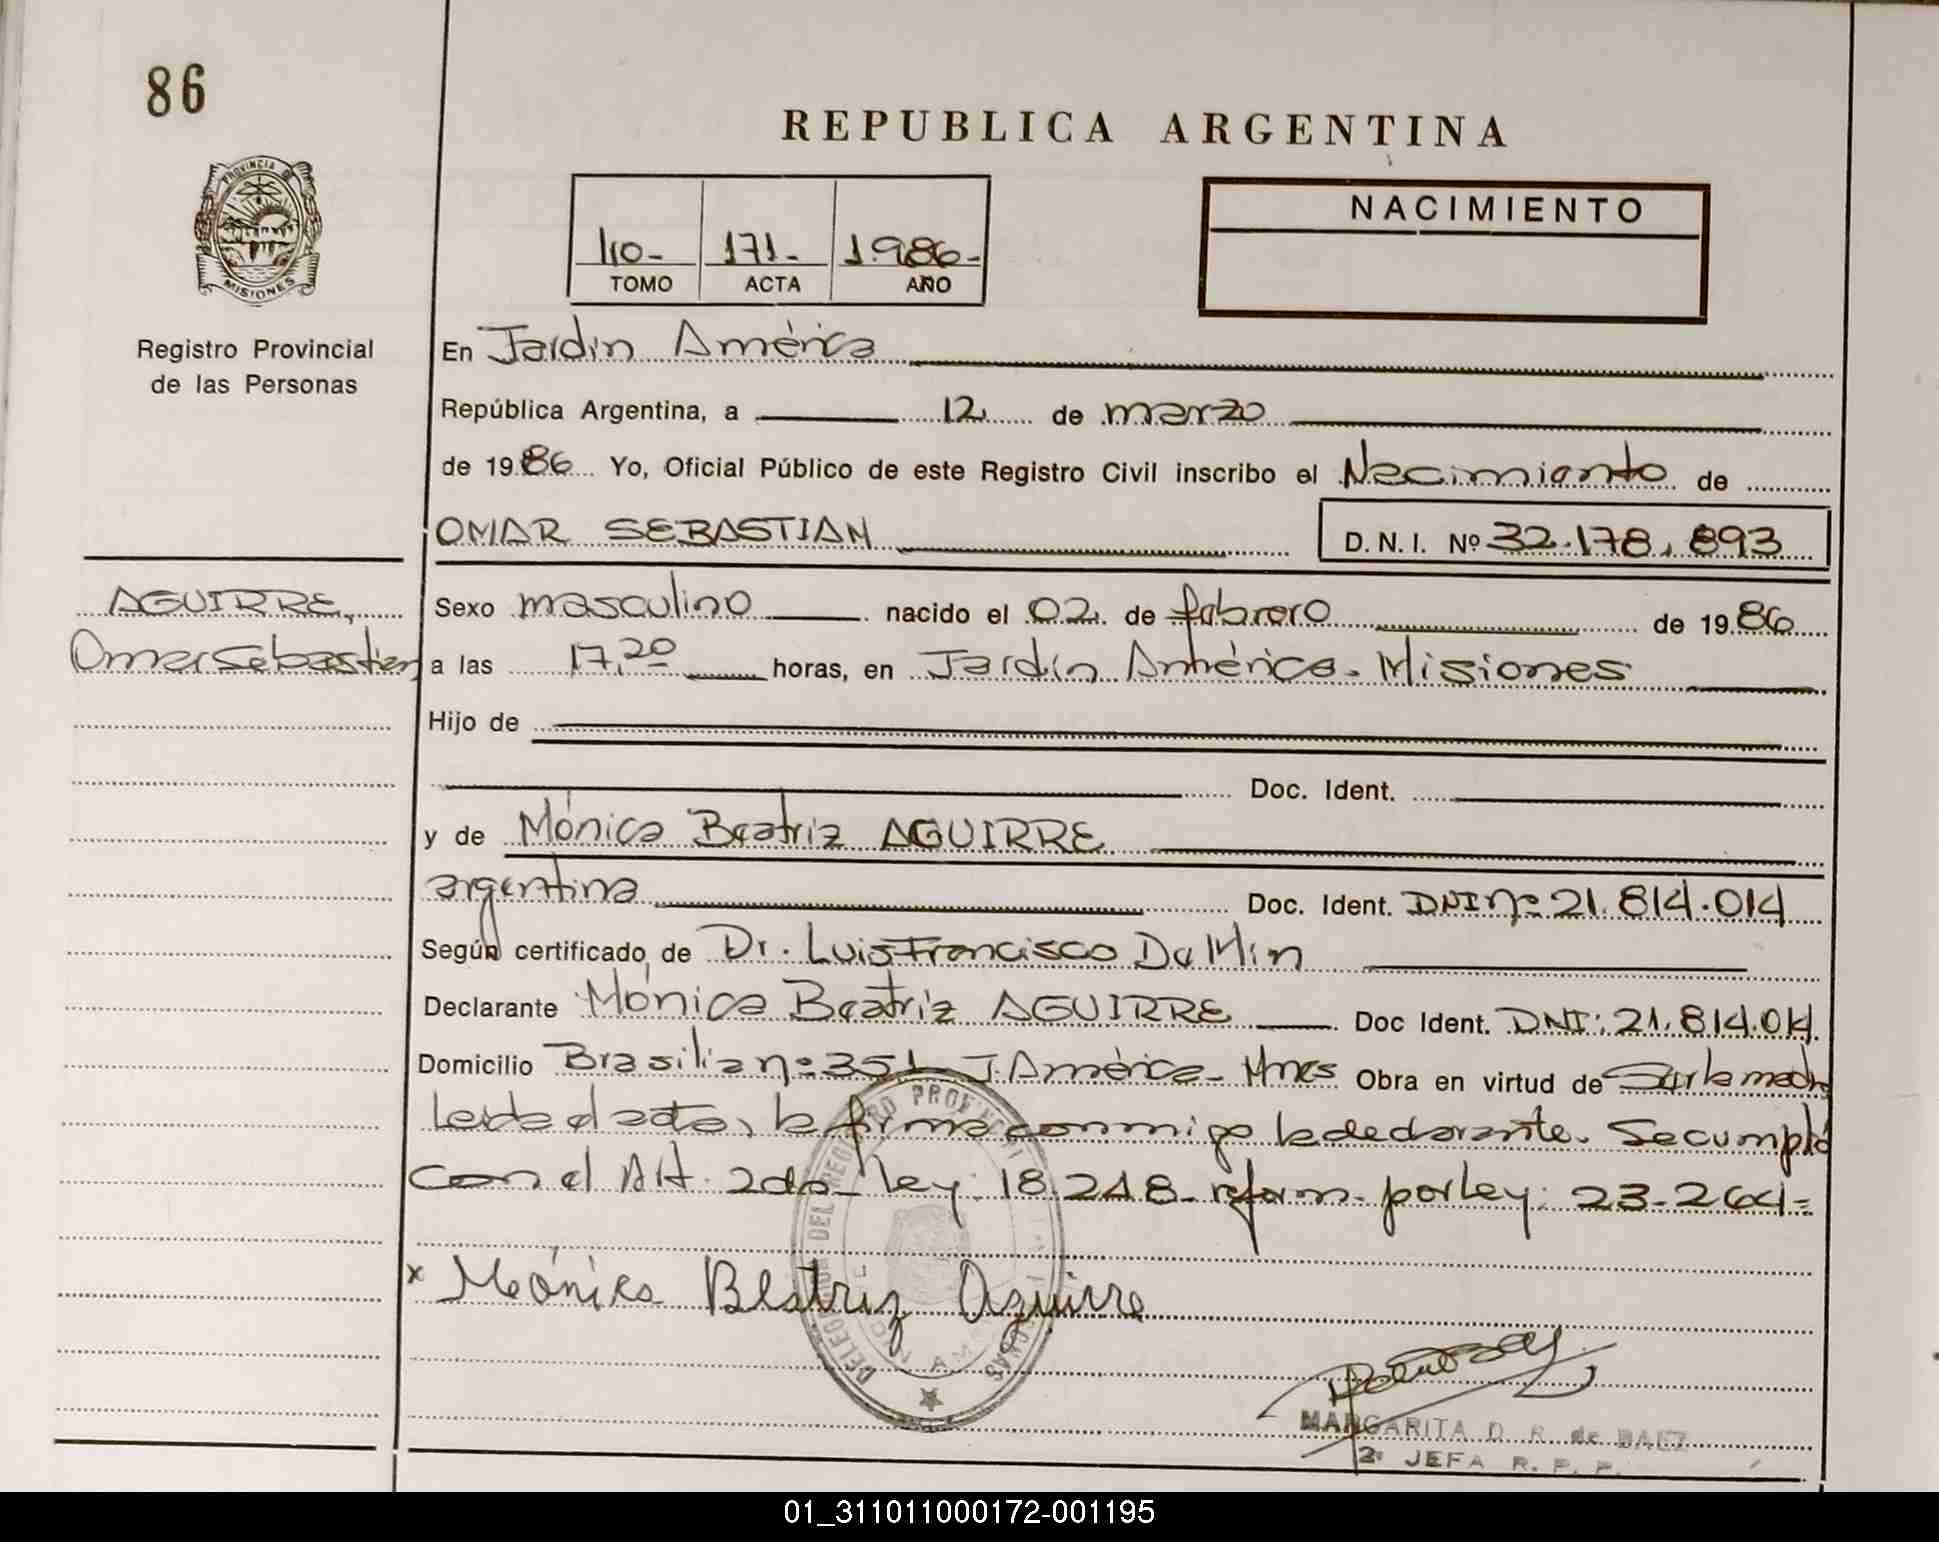 86
REPUBLICA ARGENTINA
PROVINCIA D
MISIONES
NACIMIENTO
110- 171- 1.986-
TOMO ACTA AÑO
Registro Provincial
de las Personas
En Jardin América
República Argentina, a 12 de marzo
de 1986 Yo, Oficial Público de este Registro Civil inscribo el Nacimiento de
OMAR SEBASTIAN D.N.I. Nº 32.178.893
AGUIRRE,
Omar Sebastian
Sexo masculino nacido el 02 de febrero de 1986
a las 17,20 horas, en Jardín América. Misiones
Hijo de
Doc. Ident.
y de Mónica Beatriz AGUIRRE
argentina Doc. Ident. DNI nº 21.814.014
Según certificado de Dr. Luis Francisco
Declarante Mónica Beatriz AGUIRRE Doc Ident. DNI: 21.814.014.
Domicilio Brasilia nº 351 J. América - Mnes Obra en virtud de Ser la madre
Leida el acta, la firma conmigo la declarante. Se cumplió
con el Art. 2do - Ley: 18.248 - reform - por ley: 23-264=
x Mónica Beatriz Aguirre
MARGARITA D. R. de BAEZ
2ª JEFA R. P. P.
01_311011000172-001195